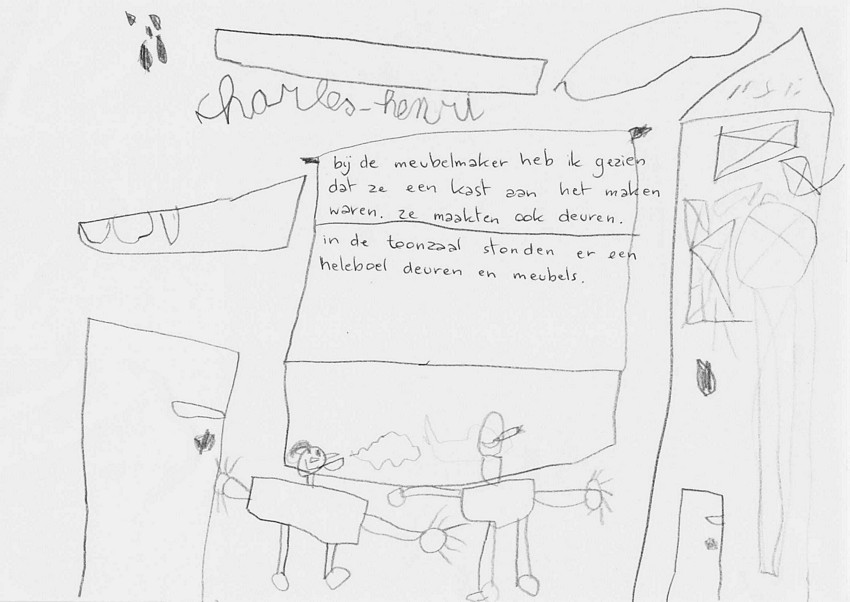 charles-henri
bij de meubelmaker heb ik gezien
dat ze een kast aan het maken
waren. ze maakten ook deuren.
in de toonzaal stonden er een
heleboel deuren en meubels.